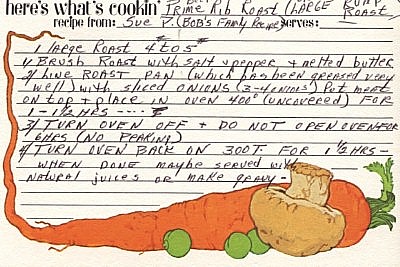 here's what's cookin' Prime Rib Roast (LARGE RUMP Roast)
recipe from: Sue P. (BOB'S Family Recipe) serves:
1 large Roast 4# to 5#
1/ Brush Roast with salt & pepper & melted butter
2/ Line ROAST PAN (which has been greased very
well) with sliced ONIONS (3-4 onions) Put meat
on top & place in oven 400° (uncovered) FOR
1 - 1 1/2 HRS
3/ TURN OVEN OFF & DO NOT OPEN OVEN FOR
6 HRS (NO PEAKING)
4/ TURN OVEN BACK ON 300° F. FOR 1 1/2 HRS -
WHEN DONE maybe served with
NATURAL juices or make gravy -